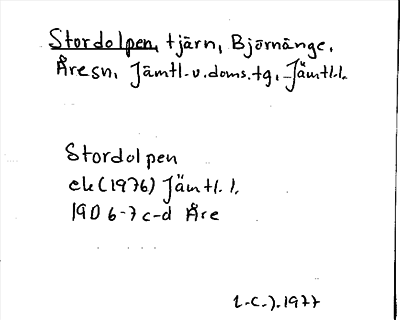 Stordolpen, tjärn, Björnänge,
Åre sn, Jämtl. v. doms. tg, Jämtl. l.
Stordolpen
ek (1976) Jämtl. l.
19D 6-7 c-d Åre
1977